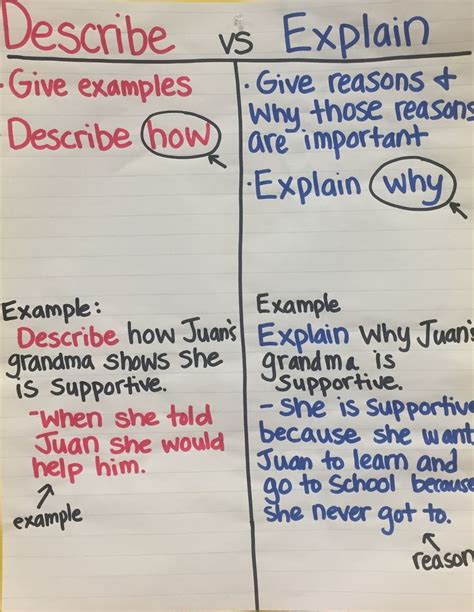 Describe vs Explain
· Give examples
Describe how
· Give reasons +
Why those reasons
are important
· Explain why
Example:
Describe how Juan's
grandma shows she
is supportive.
-When she told
Juan she would
help him.
example
Example
Explain Why Juan's
grandma is
supportive.
- She is supportive
because she want
Juan to learn and
go to School because
she never got to.
reason